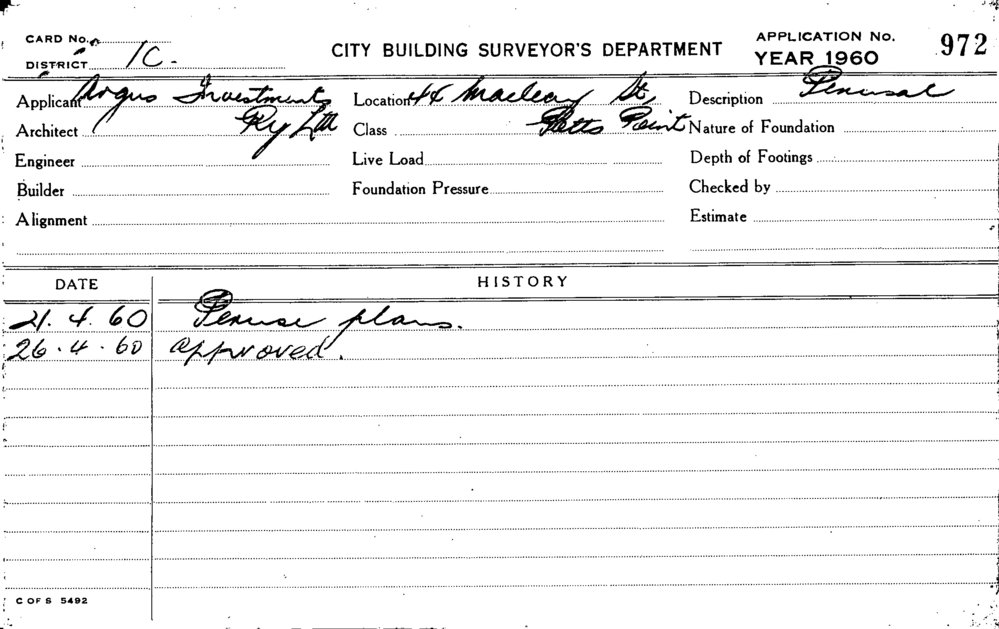 CARD No.
DISTRICT 1C.
CITY BUILDING SURVEYOR'S DEPARTMENT
APPLICATION No. 972
YEAR 1960
Applicant Argus Investments Location 44 Macleay St, Description Perusal
Architect Pty Ltd Class Potts Point Nature of Foundation
Engineer Live Load Depth of Footings
Builder Foundation Pressure Checked by
Alignment Estimate
DATE HISTORY
21.4.60 Peruse plans.
26.4.60 approved.
C OF S 5492